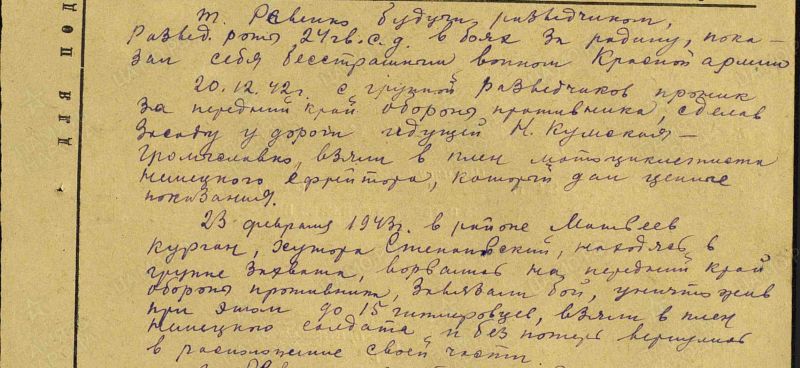 т. Ревенко будучи разведчиком,
развед. роты 24 гв. с. д. в боях за родину, пока-
зал себя бесстрашным воином Красной армии
20.12.42г. с группой разведчиков проник
за передний край обороны противника, сделав
засаду у дороги идущей Н. Кумская –
Громославка, взяли в плен мотоциклетиста
немецкого ефрейтора, который дал ценные
показания.
23 февраля 1943г. в районе Матвеев
курган, хутора Степановский, находясь в
группе захвата, ворвались на передний край
обороны противника, завязали бой, уничтожив
при этом до 15 гитлеровцев, взяли в плен
немецкого солдата и без потерь вернулись
в расположение своей части.